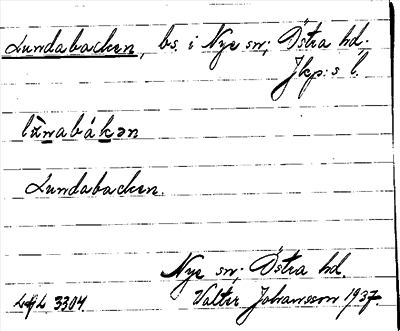 Lundabacken, bs. i Nye sn, Östra hd.
Jkp:s l.
lu̇nabákən
Lundabacken.
Nye sn, Östra hd.
LAL 3304. Valter Johansson 1937.